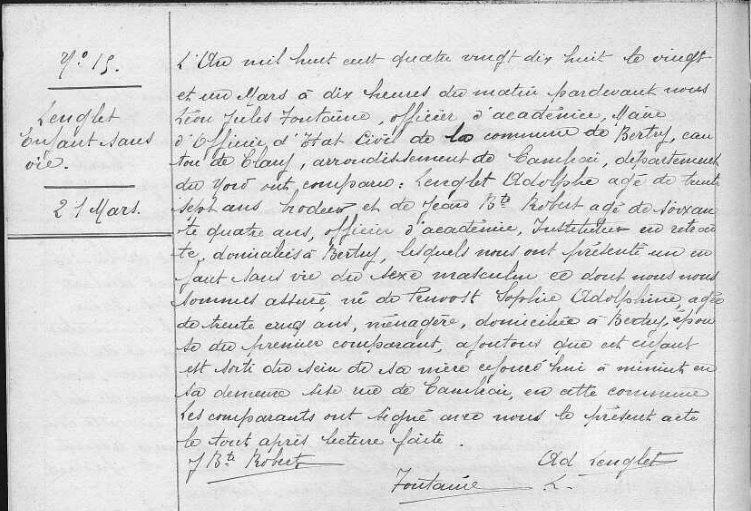 N° 15.
Lenglet
Enfant sans
vie.
21 Mars.
L'An mil huit cent quatre vingt dix huit le vingt
et un Mars à dix heures du matin pardevant nous
Léon Jules Fontaine, officier d'académie, Maire
d'Officier d'Etat Civil de la commune de Bertry, can
ton de Clary, arrondissement de Cambrai, département
du Nord ont comparu : Lenglet Adolphe agé de trente
sept ans brodeur et de Jean Bte Robert agé de soixan
te quatre ans, officier d'académie, Instituteur en retrai
te, domiciliés à Bertry, lesquels nous ont présenté un en
fant sans vie du sexe masculin ce dont nous nous
sommes assuré, né de Pruvost Sophie Adolphine, agée
de trente cinq ans, ménagère, domiciliée à Bertry, épou
se du premier comparant, ajoutons que cet enfant
est sorti du sein de sa mère cejourd'hui à minuit en
sa demeure sise rue de Cambrai, en cette commune
Les comparants ont signé avec nous le présent acte
le tout après lecture faite.
J Bte Robert
Ad Lenglet
Fontaine
L.